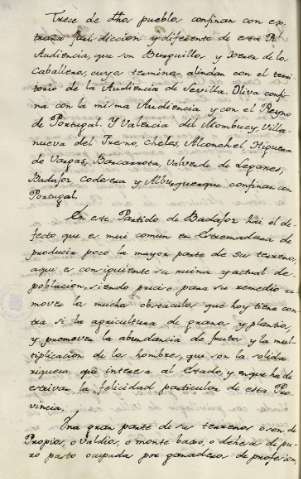 Trece de dhos pueblos confinan con ex-
traña jurisdiccion y diferente de esta Rl.
Audiencia, que son Burguillos y Xerez de los
Caballeros, cuyos terminos alindan con el terri-
torio de la Audiencia de Sevilla. Oliva confi-
na con la misma Audiencia y con el Reyno
de Portugal. Y Valencia del Mombuey, Villa-
nueva del Fresno, Cheles, Alconchel, Higuera
de Vargas, Barcarrota, Valverde de Leganes,
Badajoz, Codosera y Alburquerque confinan con
Portugal.
En este Partido de Badajoz hai el de-
fecto, que es mui comun en Extremadura de
producir poco la mayor parte de su terreno,
a que es consiguiente su ruina y actual des-
poblacion, siendo preciso para su remedio re-
mover los muchos obstaculos que hoy tiene con-
tra si la agricultura de granos y plantios,
y promover la abundancia de frutos y la mul-
tiplicacion de los hombres, que son la solida
riqueza que interesa al Estado, y en que ha de
estrivar la felicidad particular de esta Pro-
vincia.
Una gran parte de sus terrenos o son de
Propios, o Valdios, o montes baxos, o dehesas de pu-
ro pasto ocupadas por ganaderos de profesion